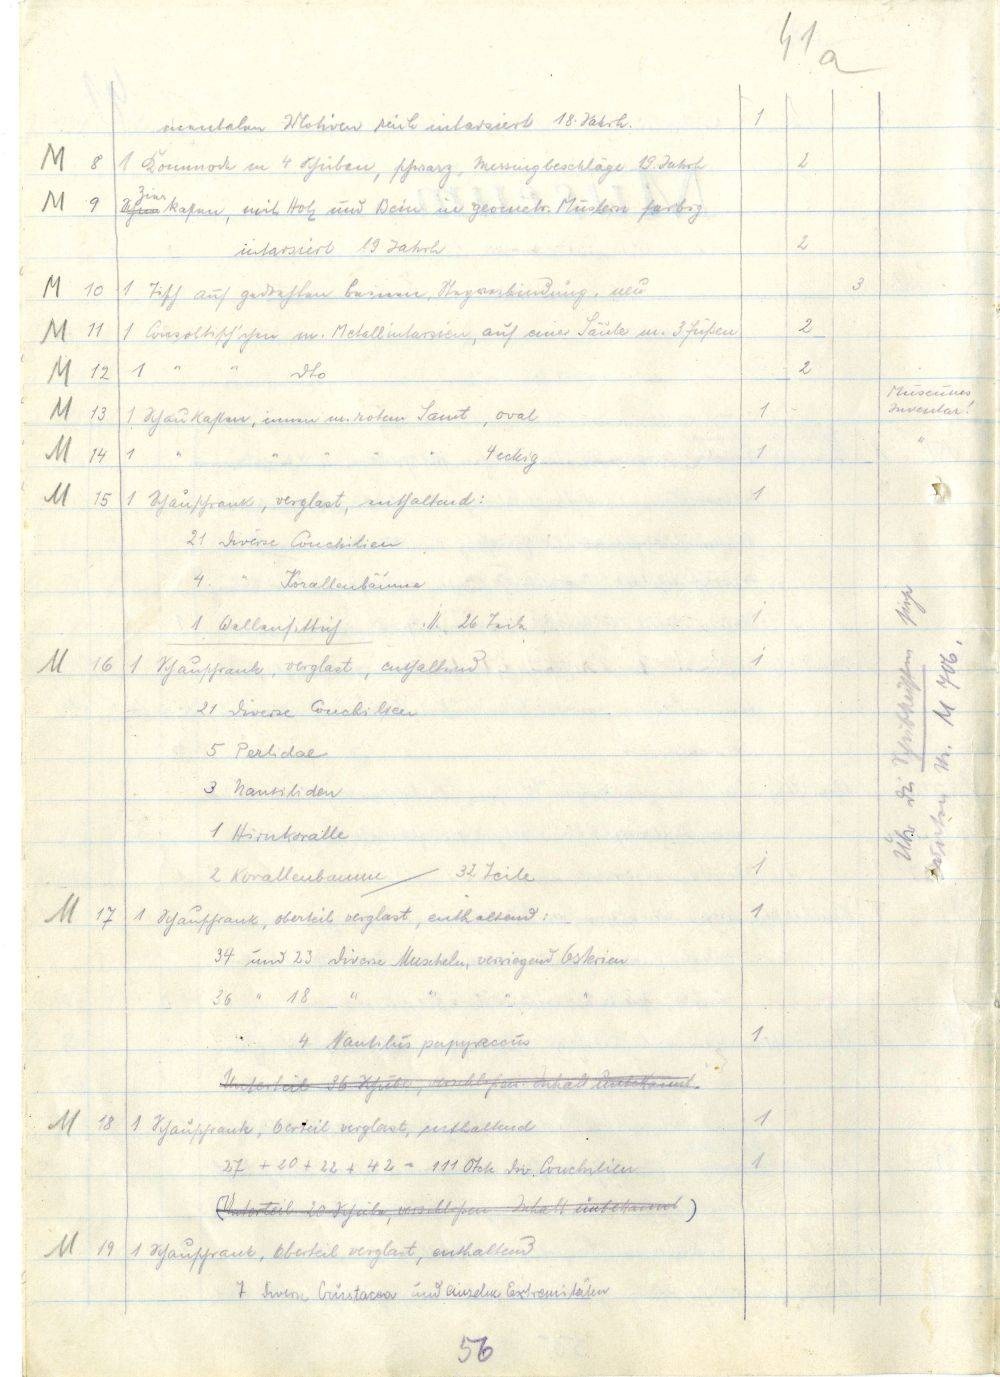 41a
mentalen Motiven reich intarsiert 18. Jahrh. 1
M 8 1 Kommode m 4 Schüben, schwarz, Messingbeschläge 19. Jahrh 2
Zier
M 9 kasten, mit Holz und Bein in geometr. Mustern farbig
intarsiert 19 Jahrh 2
M 10 1 Tisch auf gedrehten Beinen, Stegverbindung, neu 3
M 11 1 Consoltischchen m. Metallintarsien, auf einer Säule m. 3 Füßen 2
M 12 1 " " dto 2
M 13 1 Schaukasten, innen m. rotem Samt, oval 1 Museums
Inventar!
M 14 1 " " " " " 4eckig 1 "
M 15 1 Schauschrank, verglast, enthaltend: 1
21 diverse Conchilien
4 " Korallenbäume
1 26 Teile 1
M 16 1 Schauschrank, verglast, enthaltend 1
21 diverse Conchilien
5 Perlidae
3 Nautiliden
1 Hirnkoralle
2 Korallenbaume 32 Teile 1
M 17 1 Schauschrank, oberteil verglast, enthaltend: 1
34 und 23 diverse Muscheln, vorwiegend
36 " 18 " " " "
4 Nautilus papyraceus 1
Unterteil 36 Schübe, verschlossen Inhalt unbekannt.
M 18 1 Schauschrank, Oberteil verglast, enthaltend 1
27 + 20 + 22 + 42 = 111 Stck div. Conchilien 1
(Unterteil 20 Schübe, verschlossen Inhalt unbekannt)
M 19 1 Schauschrank, Oberteil verglast, enthaltend
7 diverse Crustacea und einzelne Extremitäten
Uhr die
Nr. M 706.
56